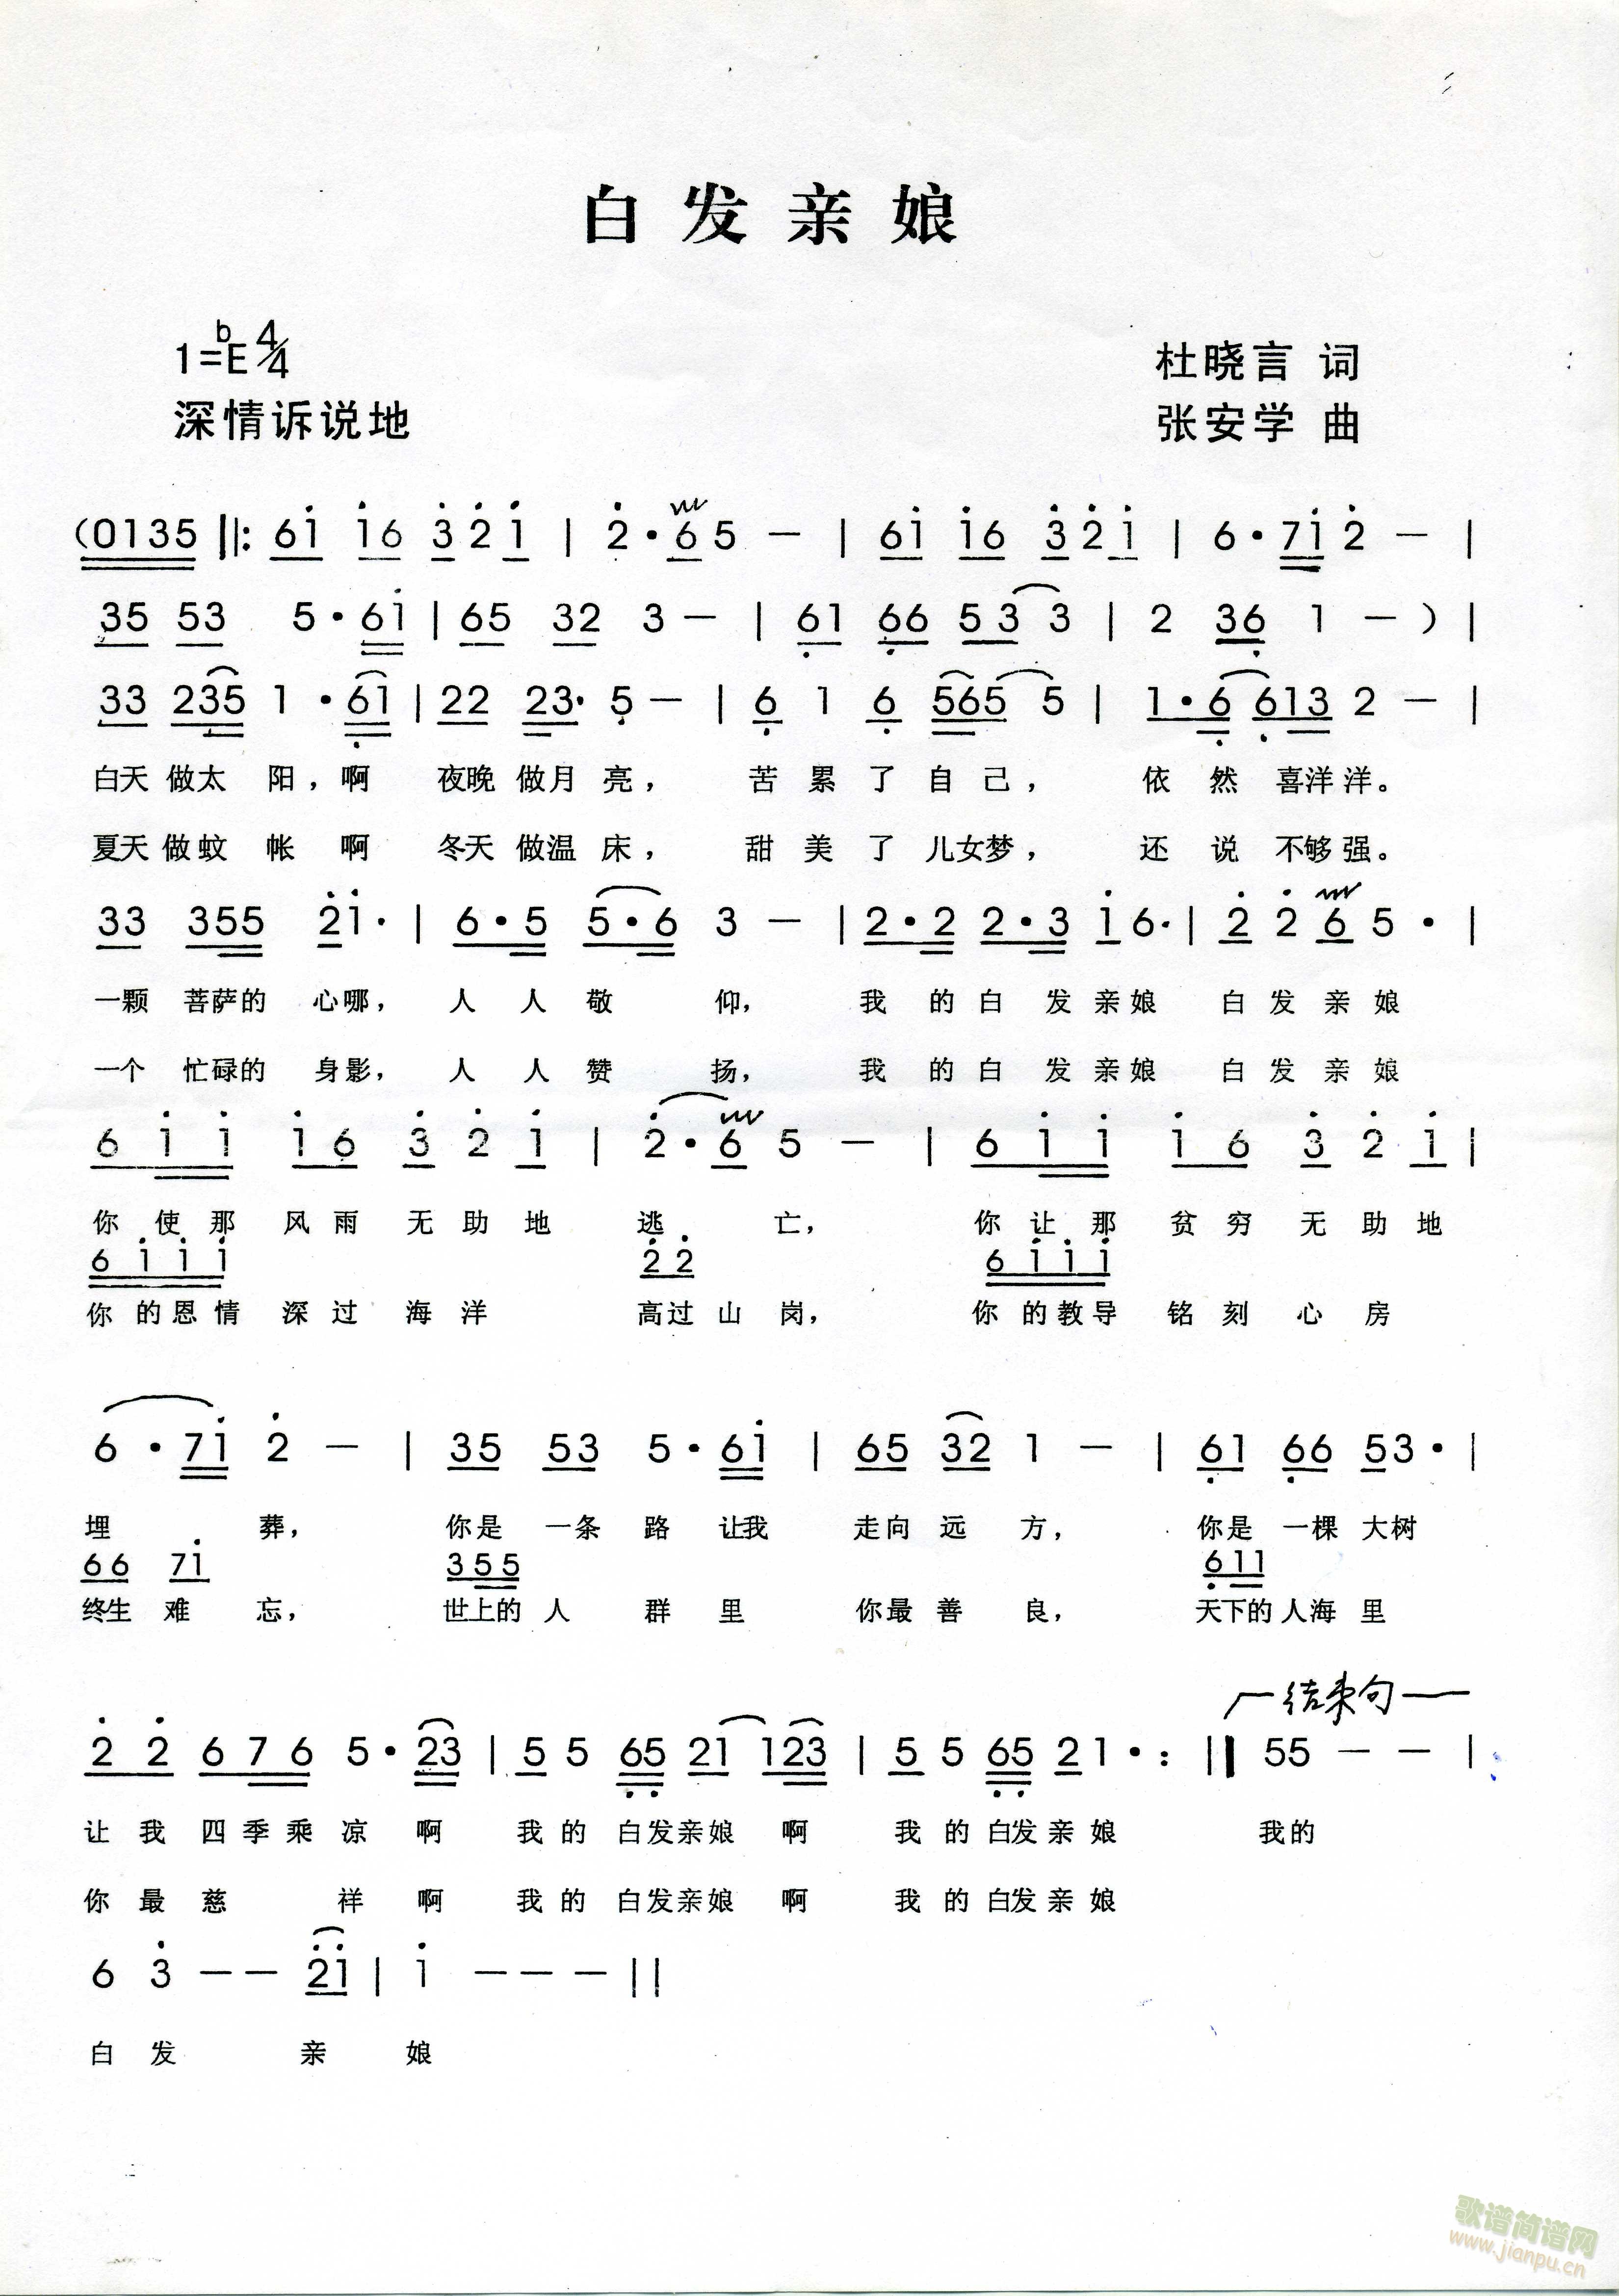 白发亲娘
1=bE 4/4
杜晓言 词
深情诉说地
张安学 曲
(0135 ‖: 6i i6 3̇2̇i | 2̇·65 — | 6i i6 3̇2̇i | 6·7i2̇ — |
35 53 5·6i | 65 32 3 — | 6̣1 6̣6̣ 53 3 | 2 36̣ 1 — ) |
33 235 1·6̣1 | 22 23· 5̣ — | 6̣ 1 6̣ 565 5 | 1·6̣ 6̣13 2 — |
白天 做太 阳，啊 夜晚 做月 亮， 苦 累 了 自 己， 依 然 喜洋洋。
夏天 做蚊 帐 啊 冬天 做温 床， 甜 美 了 儿女梦， 还 说 不够强。
33 355 2̇i· | 6·5 5·6 3 — | 2·2 2·3 i6· | 2̇ 2̇ 6 5 · |
一颗 菩萨的 心哪， 人 人 敬 仰， 我 的 白 发 亲娘 白 发 亲 娘
一个 忙碌的 身影， 人 人 赞 扬， 我 的 白 发 亲娘 白 发 亲 娘
6 i i i 6 3̇ 2̇ i | 2̇·6 5 — | 6 i i i 6 3̇ 2̇ i |
你 使 那 风 雨 无 助 地 逃 亡， 你 让 那 贫 穷 无 助 地
6 i i i 2̇ 2̇ 6 i i i
你 的 恩 情 深 过 海 洋 高过 山 岗， 你 的 教 导 铭 刻 心 房
6 · 7i 2̇ — | 35 53 5·6i | 65 32 1 — | 6̣1 6̣6̣ 53· |
埋 葬， 你是 一条 路 让我 走向 远 方， 你是 一棵 大树
66 7i 355 6̣11
终生 难 忘， 世上的 人 群 里 你最 善 良， 天下的 人海 里
结束句
2̇ 2̇ 6 7 6 5·23 | 5 5 6̣5̣ 21 123 | 5 5 6̣5̣ 21· :‖ 55 — — |
让 我 四 季 乘 凉 啊 我 的 白发亲娘 啊 我 的 白发 亲 娘 我的
你 最 慈 祥 啊 我 的 白发亲娘 啊 我 的 白发 亲 娘
6 3̇ — — 2̇i | i — — — ‖
白 发 亲 娘
歌谱简谱网
www.jianpu.cn